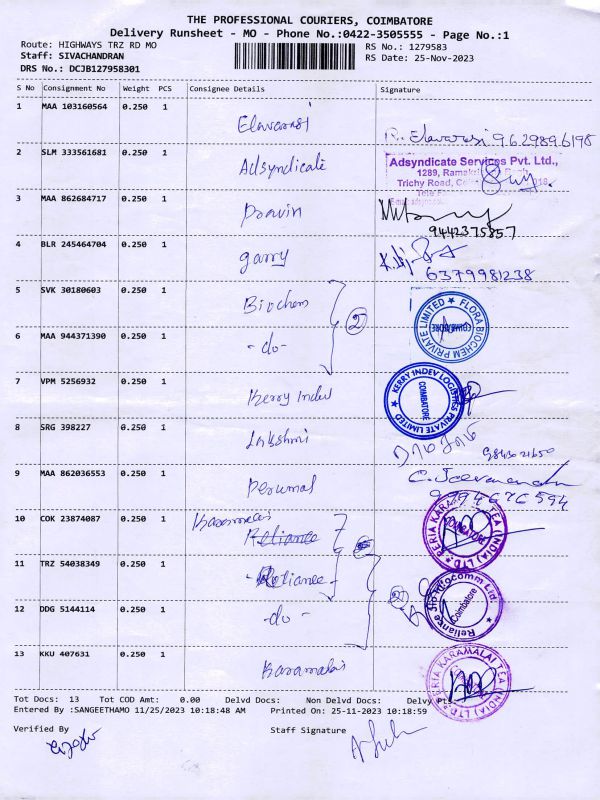 THE PROFESSIONAL COURIERS, COIMBATORE
Delivery Runsheet - MO - Phone No.:0422-3505555 - Page No.:1
Route: HIGHWAYS TRZ RD MO
RS No.: 1279583
Staff: SIVACHANDRAN
RS Date: 25-Nov-2023
DRS No.: DCJB127958301
S No Consignment No Weight PCS Consignee Details Signature
1 MAA 103160564 0.250 1 Elavarasi R. Elavarasi 9629896198
2 SLM 333561681 0.250 1 Adsyndicate
Adsyndicate Services Pvt. Ltd.,
1289,
Trichy Road,
3 MAA 862684717 0.250 1 Pravin
9442375857
4 BLR 245464704 0.250 1 garry
6379981238
5 SVK 30180603 0.250 1 Biochem
2
FLORA BIOCHEM PRIVATE LIMITED
COIMBATORE
6 MAA 944371390 0.250 1 -do-
7 VPM 5256932 0.250 1 Kerry Indev
KERRY INDEV LOGISTICS PRIVATE LIMITED
COIMBATORE
8 SRG 398227 0.250 1 Lakshmi
9 MAA 862036553 0.250 1 Perumal
10 COK 23874087 0.250 1 Reliance
PERIA KARAMALAI TEA (INDIA) LTD.
11 TRZ 54038349 0.250 1 Reliance
2
Reliance Jio Infocomm Ltd.
Coimbatore
12 DDG 5144114 0.250 1 -do-
13 KKU 407631 0.250 1 Karamalai
PERIA KARAMALAI TEA (INDIA) LTD.
Tot Docs: 13 Tot COD Amt: 0.00 Delvd Docs: Non Delvd Docs: Delvy Pts:
Entered By :SANGEETHAMO 11/25/2023 10:18:48 AM Printed On: 25-11-2023 10:18:59
Verified By Staff Signature